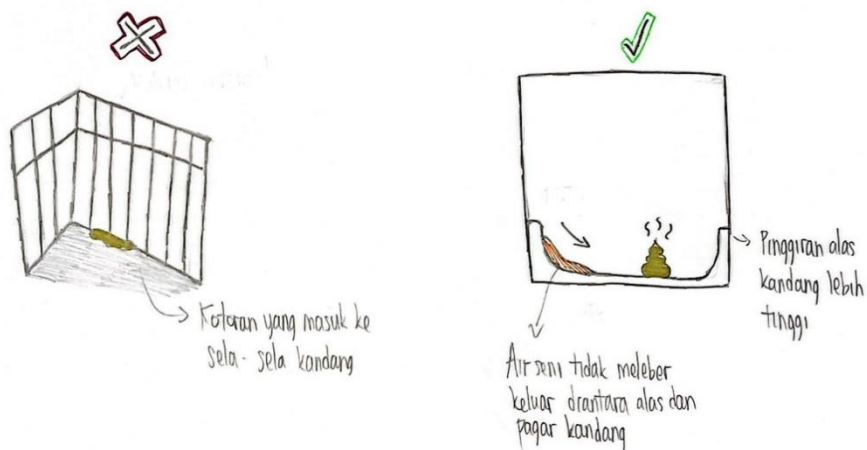 Kotoran yang masuk ke
sela-sela kandang
Pinggiran alas
kandang lebih
tinggi
Air seni tidak meleber
keluar diantara alas dan
pagar kandang